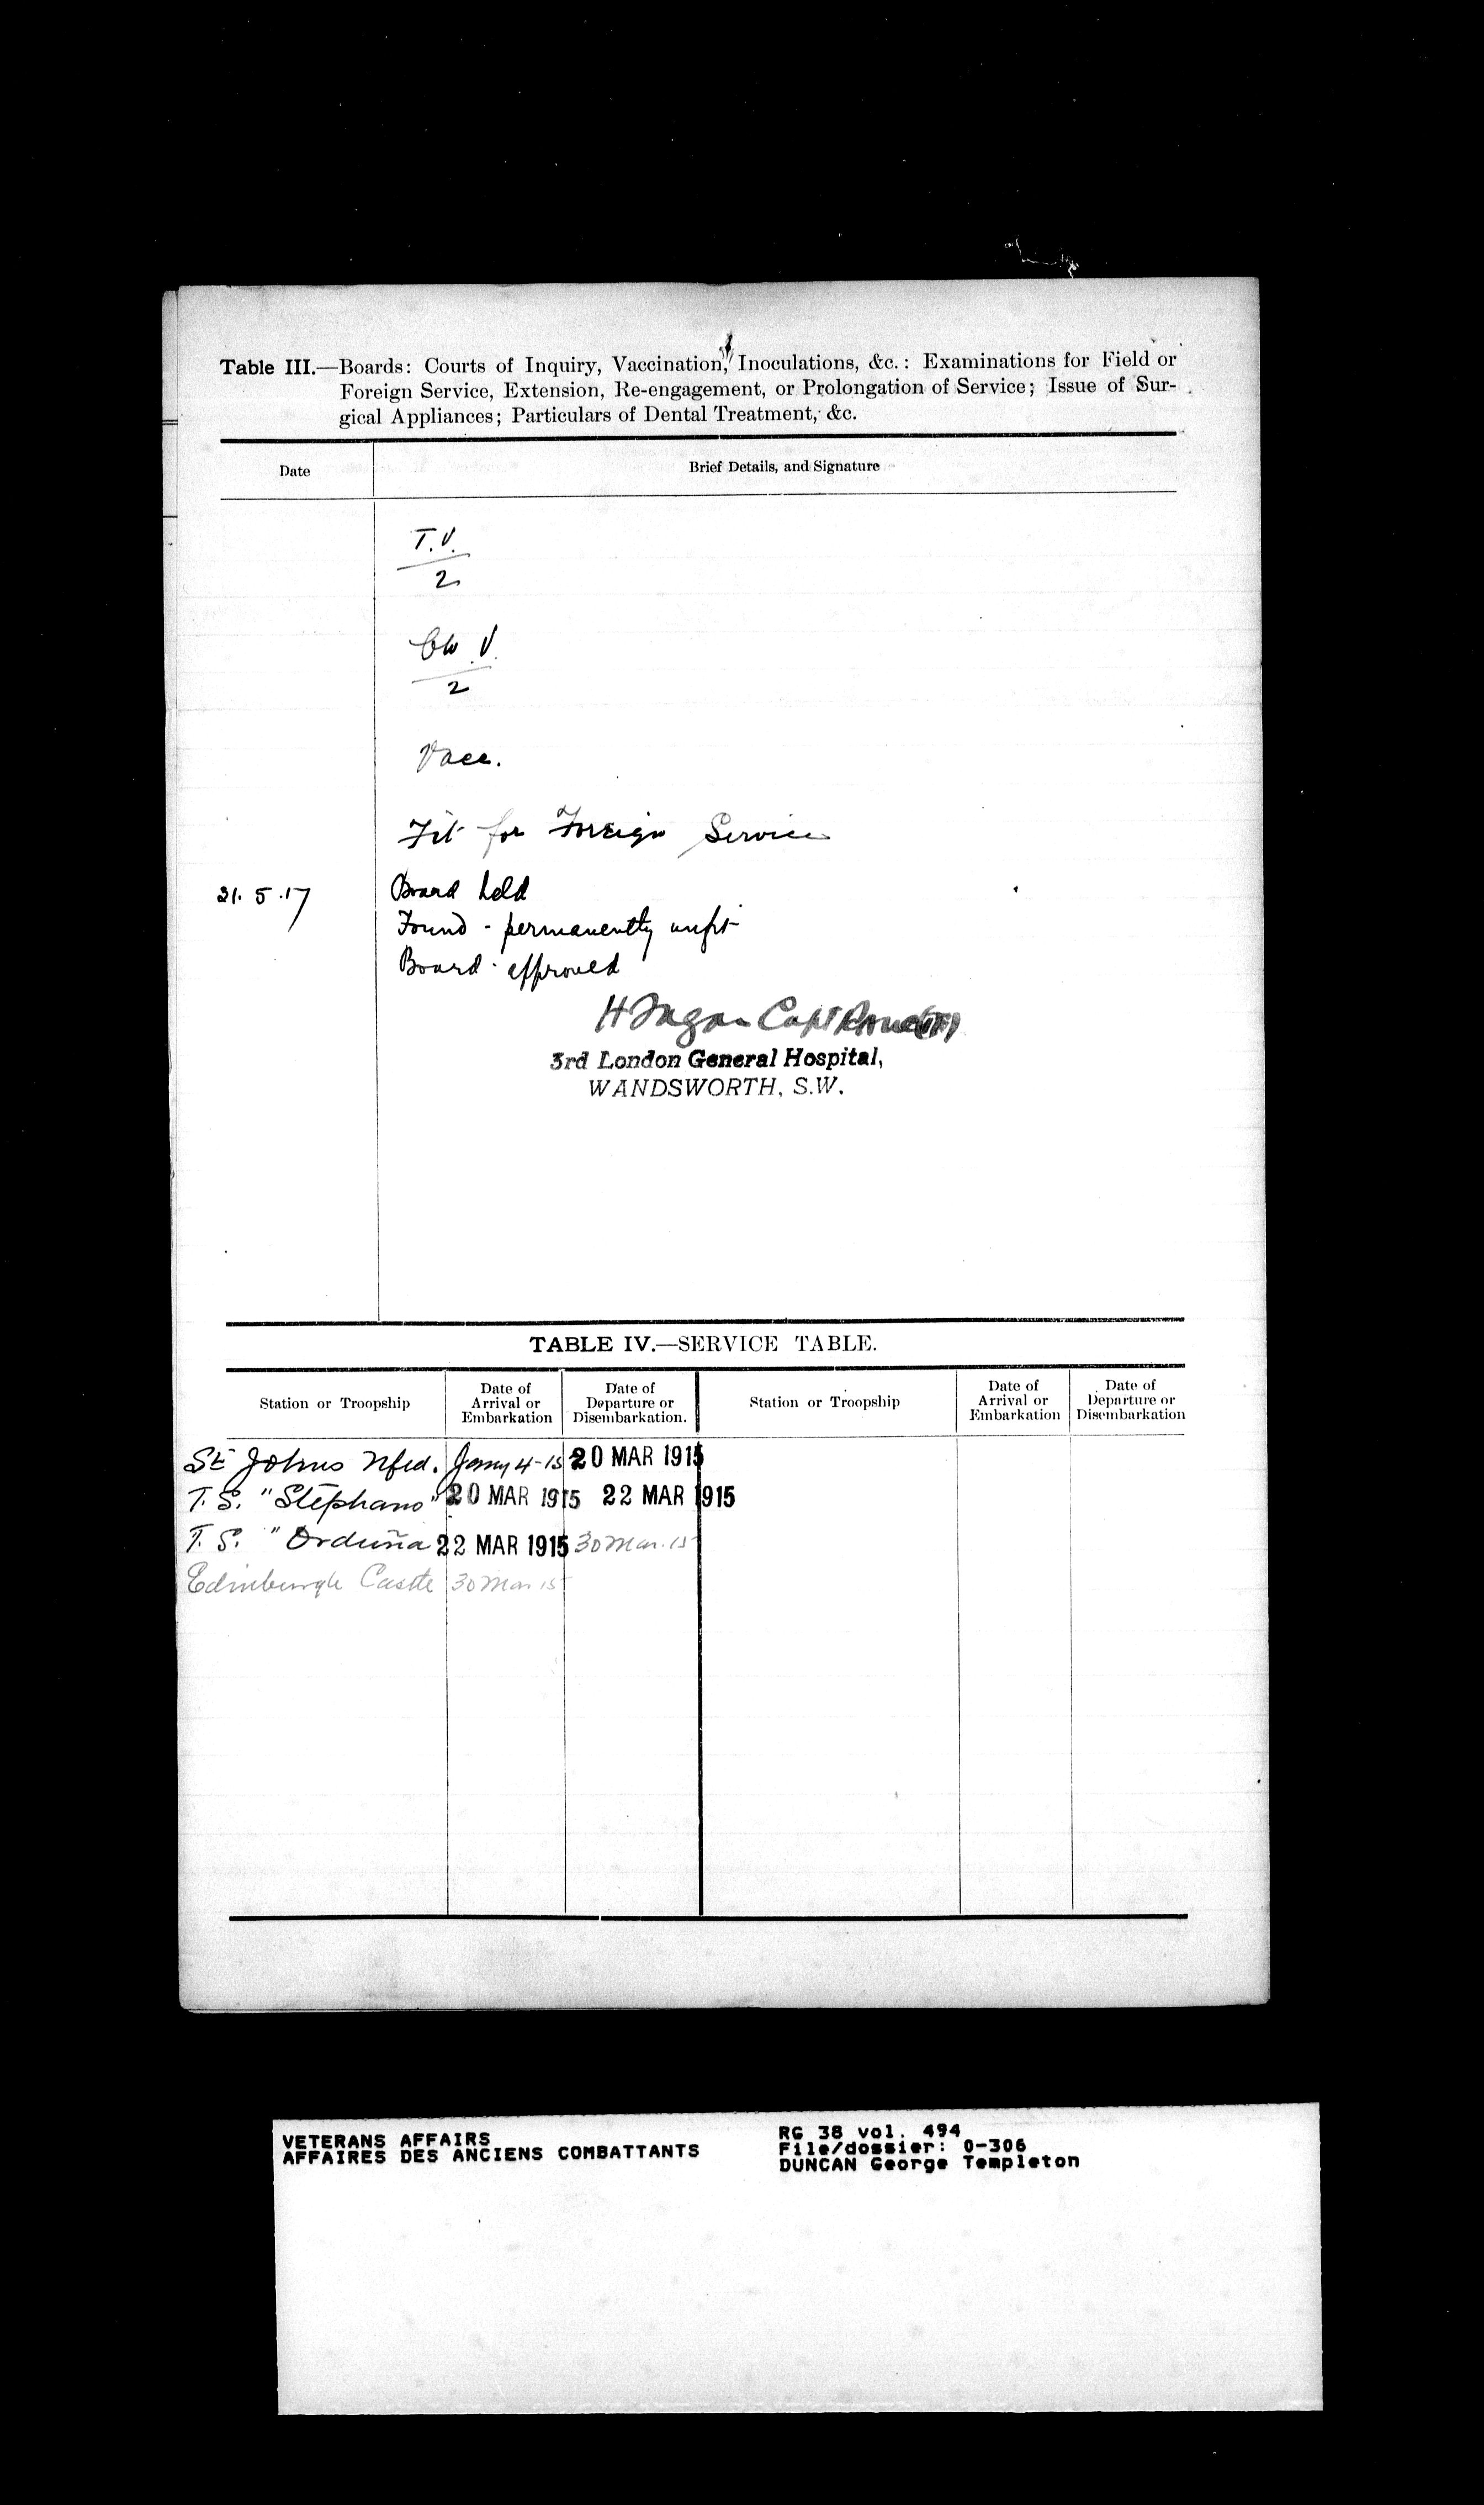 Table III.—Boards: Courts of Inquiry, Vaccination, Inoculations, &c.: Examinations for Field or
Foreign Service, Extension, Re-engagement, or Prolongation of Service; Issue of Sur-
gical Appliances; Particulars of Dental Treatment, &c.
Date Brief Details, and Signature
T.V.
2
V.
2
Vacc.
Fit for Foreign Service
21.5.17 Board held
Found - permanently unfit
Board - approved
H Capt
3rd London General Hospital,
WANDSWORTH, S.W.
TABLE IV.—SERVICE TABLE.
Station or Troopship Date of Arrival or Embarkation Date of Departure or Disembarkation. Station or Troopship Date of Arrival or Embarkation Date of Departure or Disembarkation
St Johns Nfld. Jany 4-15 20 MAR 1915
T.S. "Stephano" 20 MAR 1915 22 MAR 1915
T.S. "Orduña 22 MAR 1915 30 Mar. 15
Edinburgh Castle 30 Mar 15
VETERANS AFFAIRS
AFFAIRES DES ANCIENS COMBATTANTS
RG 38 vol. 494
File/dossier: 0-306
DUNCAN George Templeton